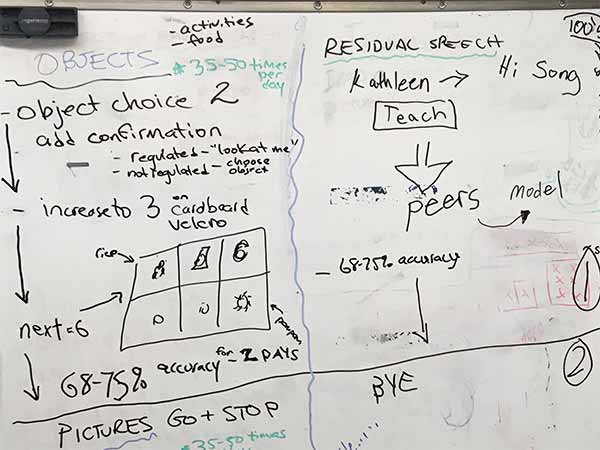 - activities
- food
OBJECTS
* 35-50 times
per
day
- object choice 2
add confirmation
- regulated - "look at me"
- not regulated - choose
object
- increase to 3 on
cardboard
velcro
rice
next = 6
68-75% accuracy for - 2 DAYS
PICTURES GO + STOP
* 35-50 times
RESIDUAL SPEECH
Kathleen → Hi Song
Teach
peers
model
- 68-75% accuracy
1
2
BYE